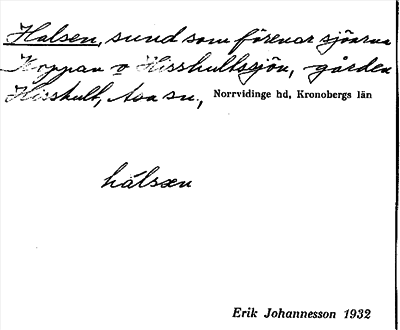 Halsen, sund som förenar sjöarna
Koppan o Hisshultssjön, gården
Hisshult, Asa sn., Norrvidinge hd, Kronobergs län
hálsæn
Erik Johannesson 1932